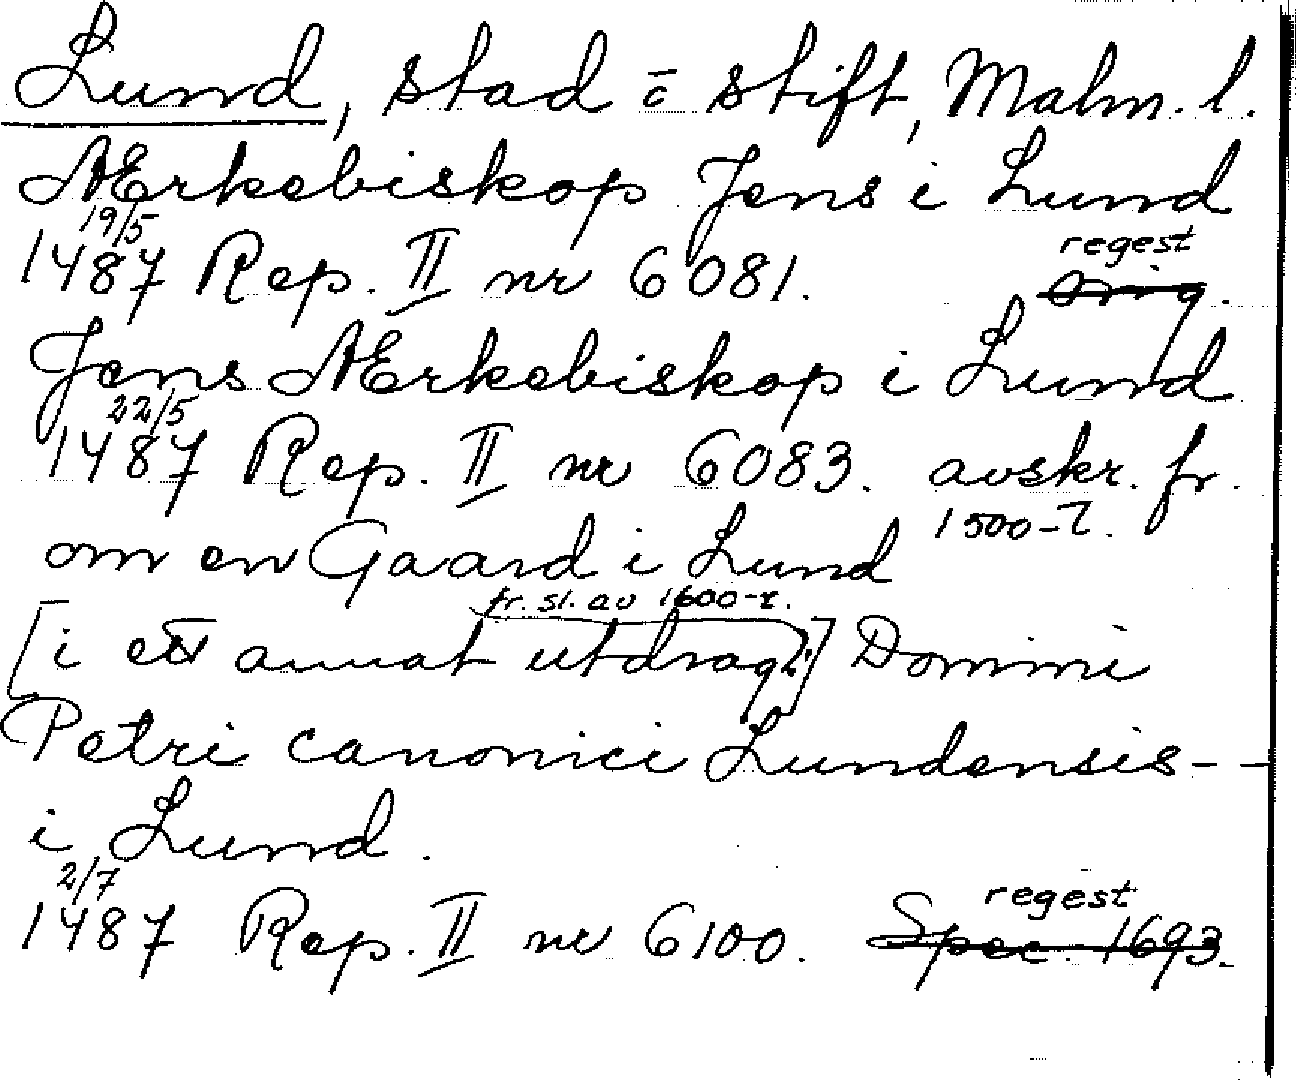 Lund, stad o stift, Malm. l.
Ærkebiskop Jens i Lund
19/5
1487 Rep. II nr 6081. regest
Orig.
Jens Ærkebiskop i Lund
22/5
1487 Rep. II nr 6083. avskr. fr.
1500-t.
om en Gaard i Lund
fr. sl. av 1600-t.
[i ett annat utdrag:] Domini
Petri canonici Lundensis--
i Lund.
2/7
1487 Rep. II nr 6100. regest
Spec. 1693.